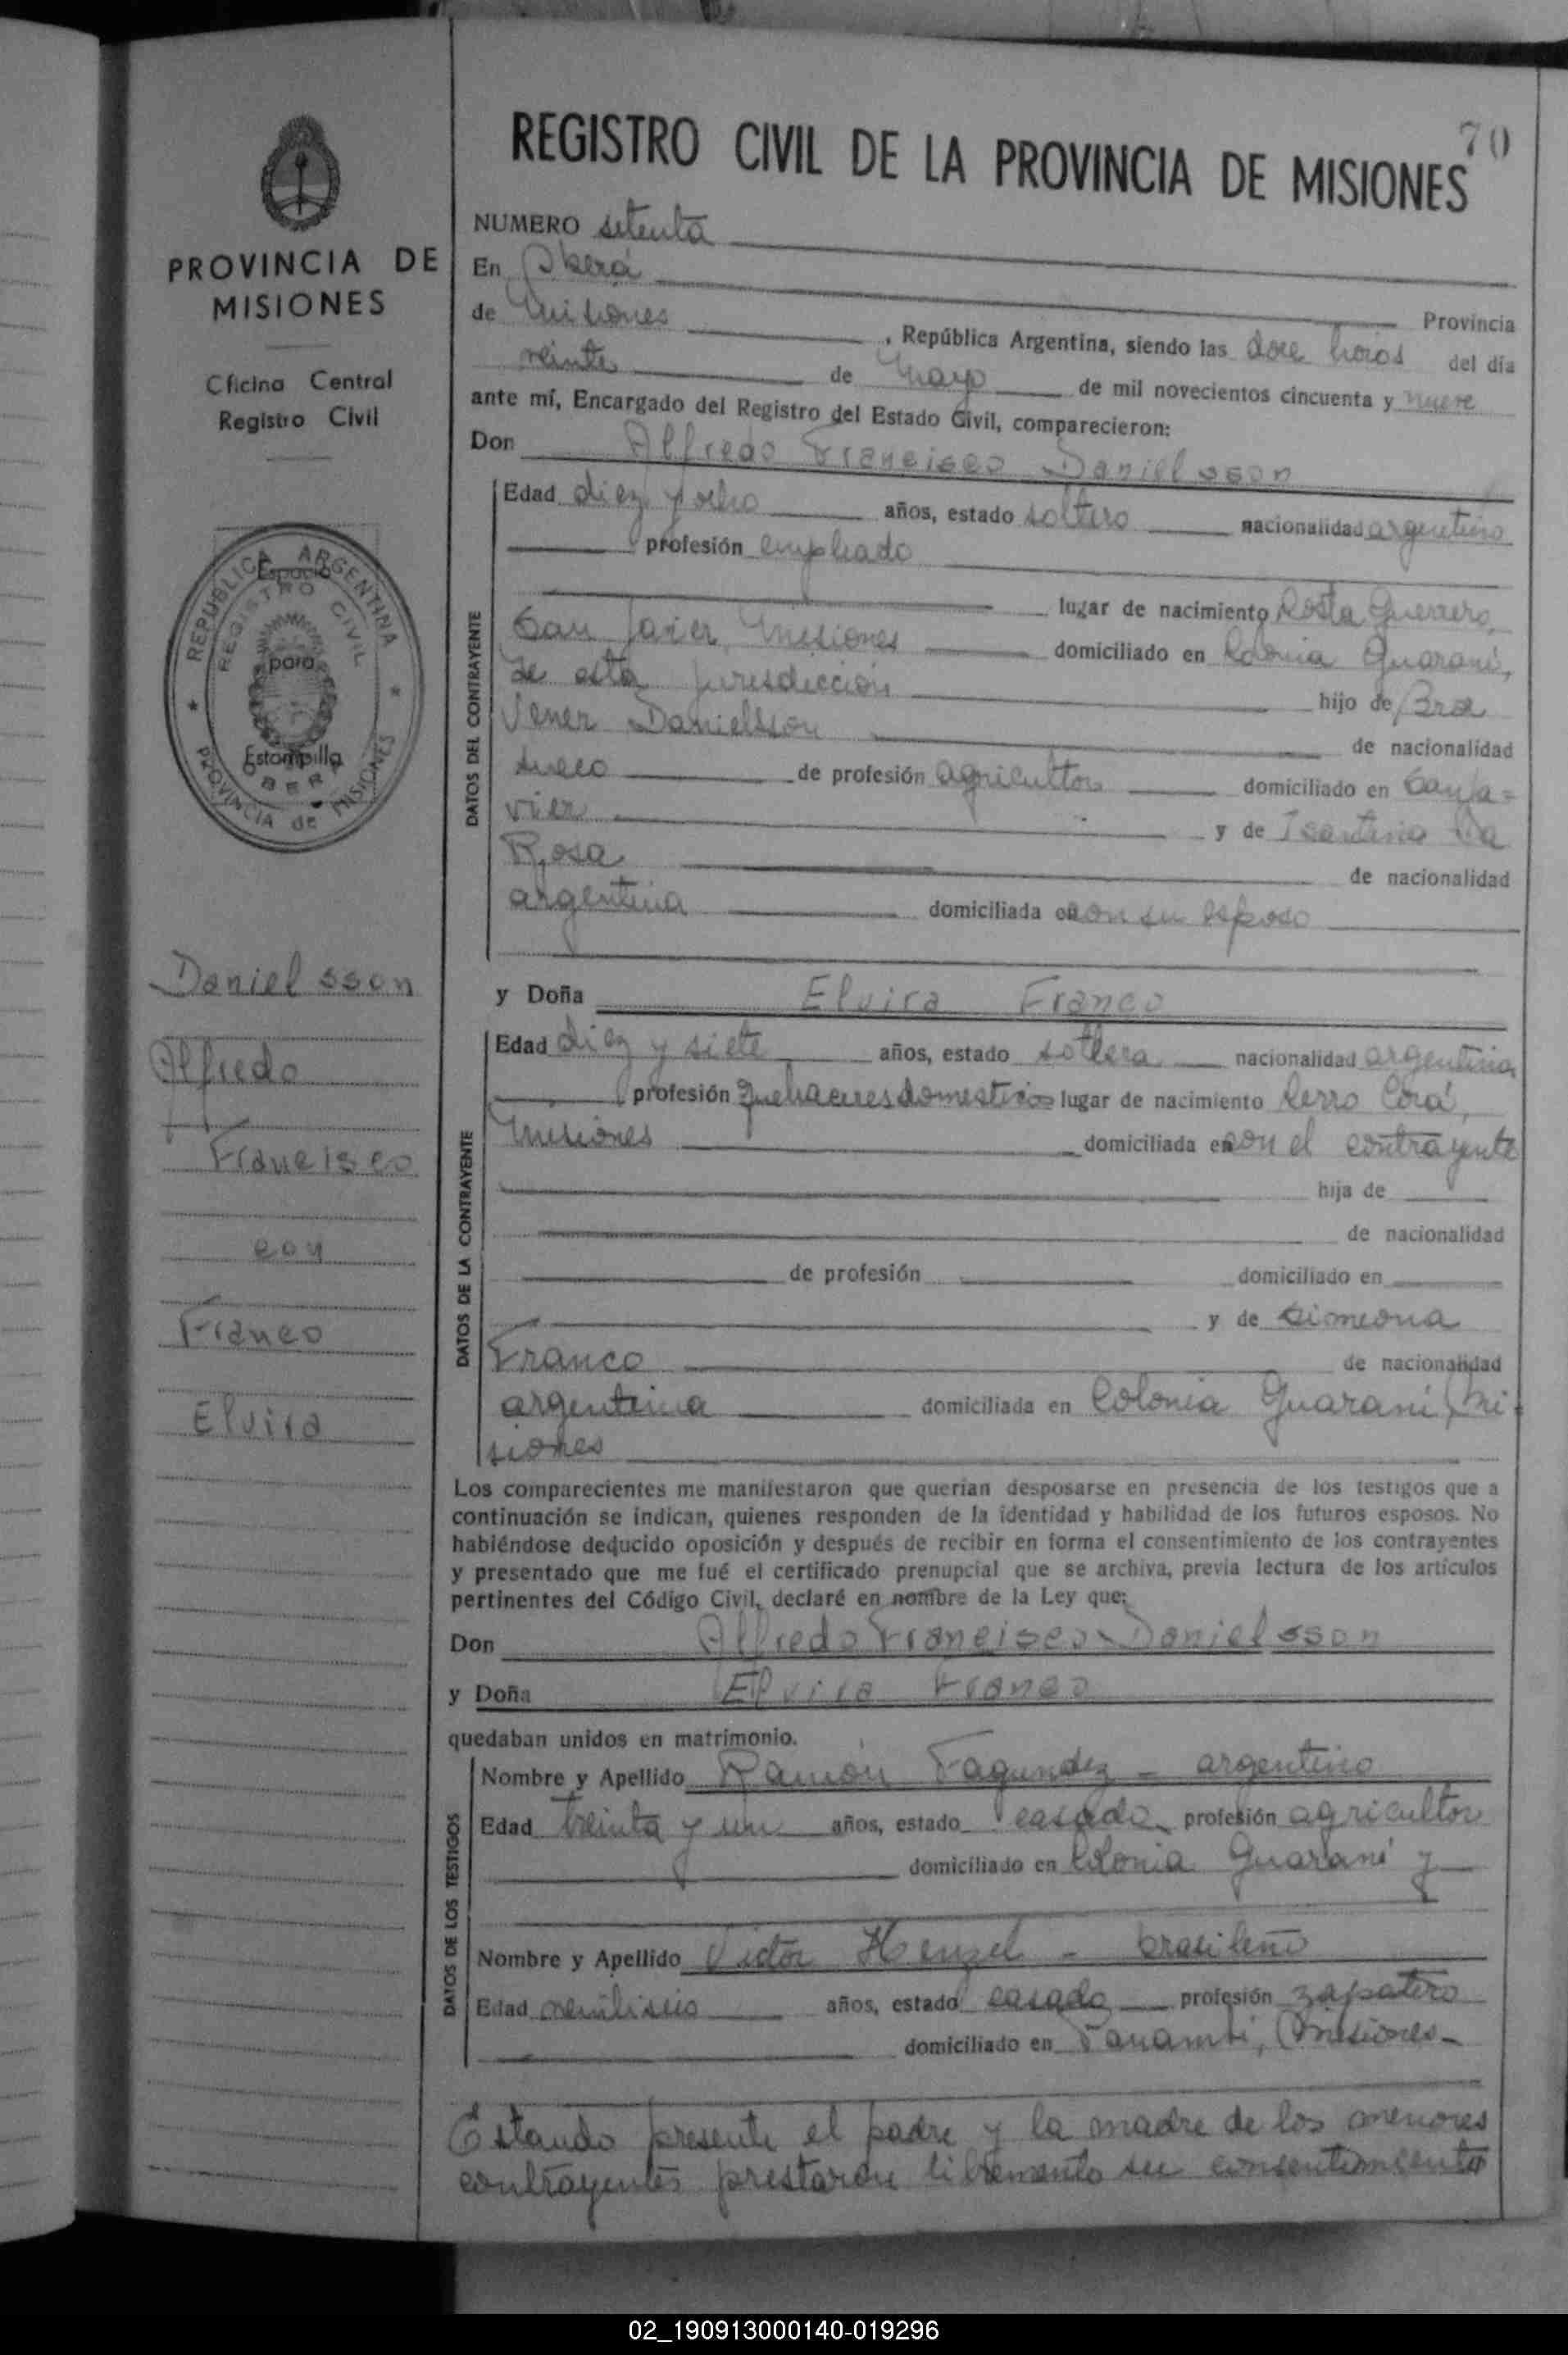 70
REGISTRO CIVIL DE LA PROVINCIA DE MISIONES
PROVINCIA DE
MISIONES
Oficina Central
Registro Civil
REPUBLICA ARGENTINA
REGISTRO CIVIL
Espacio
para
Estampilla
OBERA
PROVINCIA de MISIONES
Danielsson
Alfredo
Francisco
con
Franco
Elvira
NUMERO setenta
En Oberá
Provincia
de Misiones , República Argentina, siendo las doce horas del día
veinte de Mayo de mil novecientos cincuenta y nueve
ante mí, Encargado del Registro del Estado Civil, comparecieron:
Don Alfredo Francisco Danielsson
DATOS DEL CONTRAYENTE
Edad diez y ocho años, estado soltero nacionalidad argentino
profesión empleado
lugar de nacimiento Costa Guerrero,
San Javier, Misiones domiciliado en Colonia Guaraní,
de esta jurisdicción hijo de
Vener Danielsson de nacionalidad
sueco de profesión agricultor domiciliado en San Ja=
vier y de Da
Rosa de nacionalidad
argentina domiciliada en con su esposo
y Doña Elvira Franco
DATOS DE LA CONTRAYENTE
Edad diez y siete años, estado soltera nacionalidad argentina
profesión quehaceres domesticos lugar de nacimiento Cerro Corá,
Misiones domiciliada en con el contrayente
hija de
de nacionalidad
de profesión domiciliado en
y de Simeona
Franco de nacionalidad
argentina domiciliada en Colonia Guaraní, Mi-
siones
Los comparecientes me manifestaron que querían desposarse en presencia de los testigos que a
continuación se indican, quienes responden de la identidad y habilidad de los futuros esposos. No
habiéndose deducido oposición y después de recibir en forma el consentimiento de los contrayentes
y presentado que me fué el certificado prenupcial que se archiva, previa lectura de los artículos
pertinentes del Código Civil, declaré en nombre de la Ley que:
Don Alfredo Francisco Danielsson
y Doña Elvira Franco
quedaban unidos en matrimonio.
DATOS DE LOS TESTIGOS
Nombre y Apellido Ramón Fagundez - argentino
Edad treinta y un años, estado casado profesión agricultor
domiciliado en Colonia Guaraní y
Nombre y Apellido Victor Henzel - brasileño
Edad años, estado casado profesión zapatero
domiciliado en Panambí, Misiones-
Estando presente el padre y la madre de los menores
contrayentes prestaron libremente su consentimiento
02_190913000140-019296